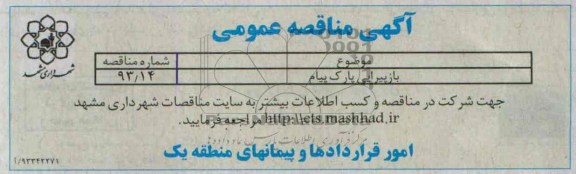 آگهی مناقصه عمومی
موضوع
شماره مناقصه
بازپیرائی پارک پیام
۹۳٫۱۴
جهت شرکت در مناقصه و کسب اطلاعات بیشتر به سایت مناقصات شهرداری مشهد
http://ets.mashhad.ir مراجعه فرمایید.
امور قراردادها و پیمانهای منطقه یک
شهرداری مشهد
۹۳۳۴۲۲۷۱/